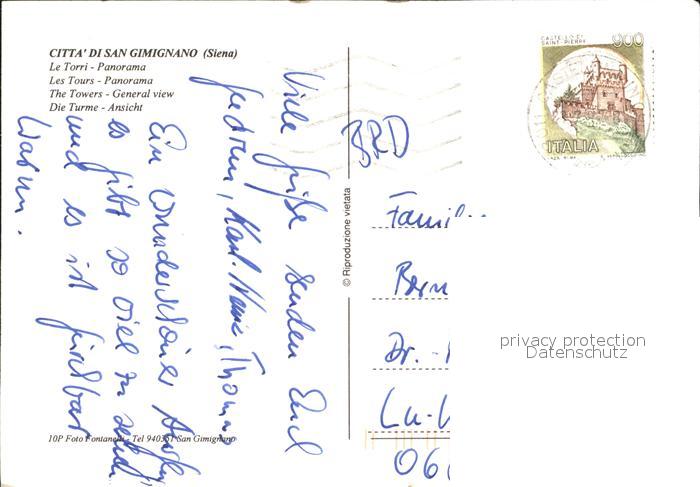 CITTA' DI SAN GIMIGNANO (Siena)
Le Torri - Panorama
Les Tours - Panorama
The Towers - General view
Die Turme - Ansicht
Viele Grüße senden Euch
Karl-Heinz, Thomas
Ein wunderschöner
es gibt so viel zu sehen
und es ist furchtbar
warm.
10P Foto Fontanelli - Tel 940351 San Gimignano
© Riproduzione vietata
CASTELLO DI
SAINT-PIERRE
900
ITALIA
BRD
Famil
Bern
Dr. -
Lu-
06
privacy protection
Datenschutz